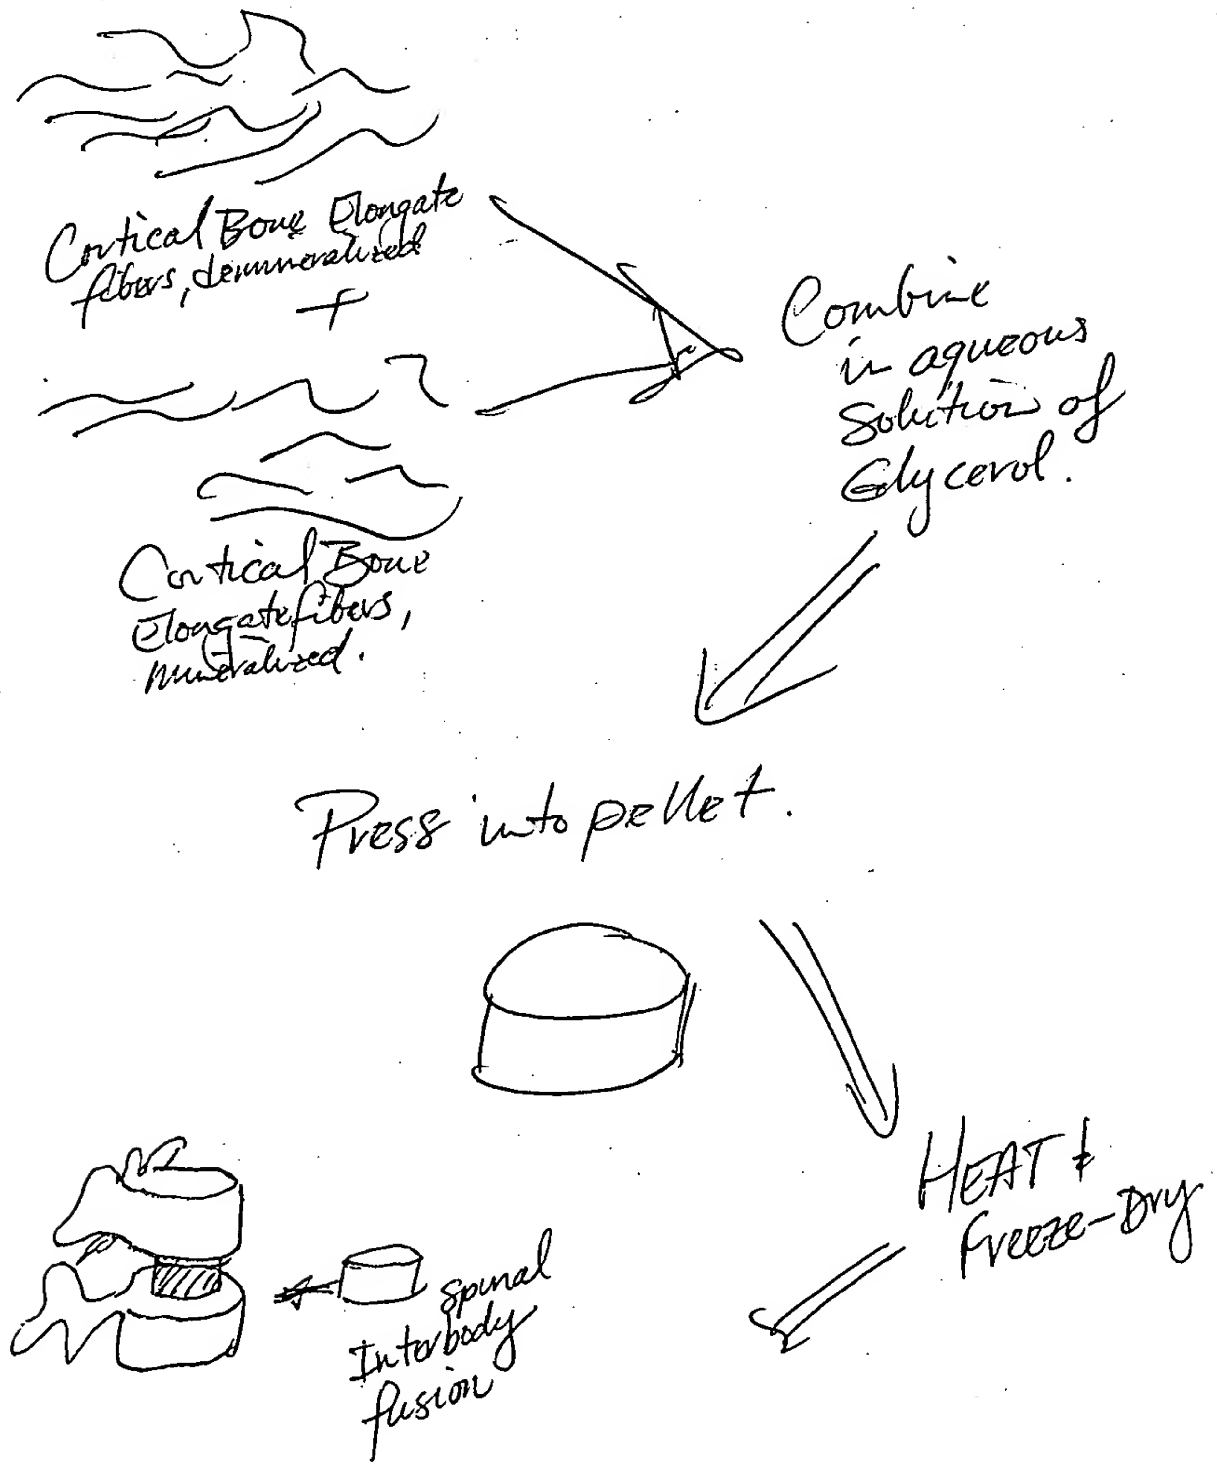 Cortical Bone Elongate
fibers, demineralized
+
Cortical Bone
Elongate fibers,
mineralized.
Combine
in aqueous
Solution of
Glycerol.
Press into pellet.
HEAT &
Freeze-Dry
spinal
Interbody
fusion